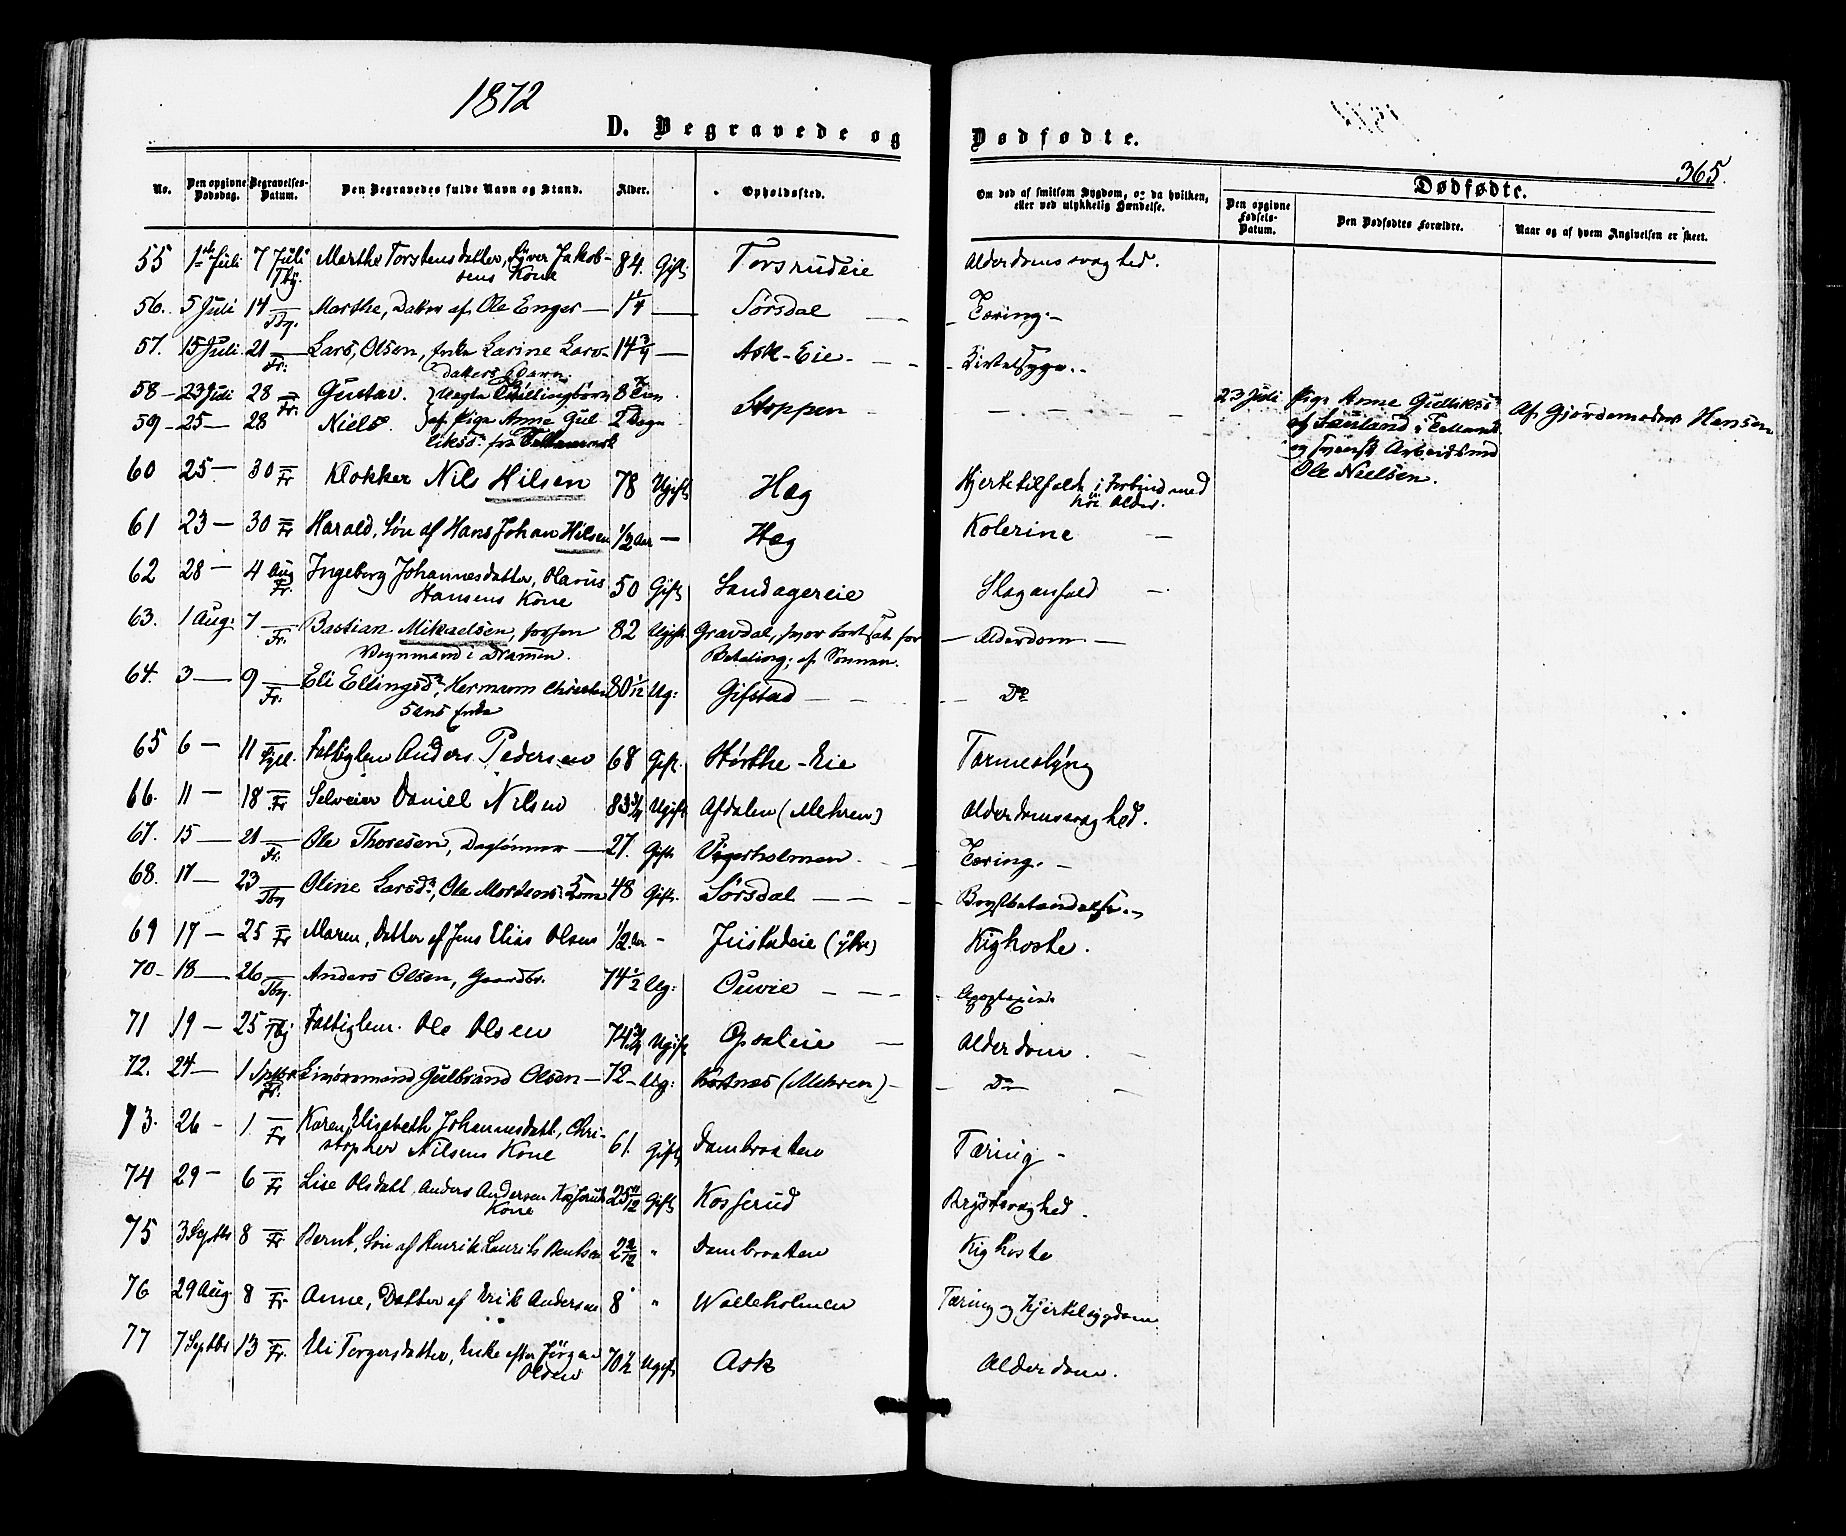 1872
D. Begravede og Dødfødte.
365.
No. Den opgivne Dødsdag. Begravelses-Datum. Den Begravedes fulde Navn og Stand. Alder. Opholdssted. Om død af smitsom Sygdom, og da hvilken, eller ved ulykkelig Hændelse.
Dødfødte.
Den opgivne Fødsels-Datum. Den Dødfødtes Forældre. Naar og af hvem Angivelsen er skeet.
55 1ste Juli 7 Juli Marthe Torstensdatter, Syver Jakob- 84. Gift Torsrudeie Alderdomssvaghed.
sens Kone
56. 5 Juli 14 — Marthe, Datter af Ole Enger — 1 1/4 — Sørsdal — Tæring. —
57. 15 Juli 21 — Fr. Lars, Olsen, Enke Larine Lars- 14 3/4 — Ask-Eie — Kirtelsyge.
datters Barn.
58 — 23 Juli 28 — Fr. Gustav. uægte Tvillingbørn 8 Stoppen
59 — 25 — 28 Niels af Pige Anne Gul- 2 Dage
liksd. fra Tellemark
23 Juli Pige Anne Gulliksd.
af Sauland i Tellemk.
og svensk Arbeidsmd
Ole Nielsen.
Af Gjordemoder Hansen
60 25 — 30 — Fr Klokker Nils Hilsen 78 Ugift Hæg Hjertetilfælde i Forbind. med
høi Alder.
61 23 — 30 — Fr Harald, Søn af Hans Johan Hilsen 1/2 Aar — Hæg Kolerine —
62 28 — 4 Aug Fr. Ingeborg Johannesdatter, Olaus 50 Gift Sandagereie Slaganfald —
Hansens Kone
63. 1 Aug: 7 — Fr. Bastian Mikaelsen, forhen 82 Ugift Gravdal, hvor bortsat for — Alderdom —
Vognmand i Drammen. Betaling, af Sønnen.
64. 3 — 9 — Fr. Eli Ellingsdr., Hermann Christian 80 1/12 Ug: Gifstad — — Do
sens Enke
65 6 — 11 — Fattiglem Anders Pedersen 68 Gift. Størthe-Eie Tarmeslyng
66. 11 — 18 — Fr Selveier Daniel Nilsen 83 3/4 Ugift Afdalen (Mehren) Alderdomssvaghed.
67. 15 — 21 — Fr. Ole Thoresen, Daglønner — 27. Gift Vigerholmen — Tæring. —
68. 17 — 23 — Oline Larsdr., Ole Mortens: Kone 48 Gift. Sørsdal — — — Brystbetændelse.
69 17 — 25 — Fr Maren, Datter af Jens Elias Olsen 1/2 Aar - Justadeie (ytre) Kighoste.
70 — 18 — 26 — Anders Olsen, Gaardbr. 74 1/2 Ug: Ouvie — — — Apoplexie.
71 19 — 25 — Fattiglem. Ole Olsen 74 3/4 Ugift Opsaleie — Alderdom. —
72. 24 — 1 Septbr Fr. Gulbrand Olsen — 72 — Ug: (Mehren) — — Do —
73. 26 — 1. — Fr Karen Elisabeth Johannesdatt., Chri- 61. Gift Dambraaten Tæring —
stopher Nilsens Kone
74 29 — 6 — Fr Lise Olsdatt. Anders Andersen Kosserud 25 11/12 Gift Kosserud Brystsvaghed.
Kone
75 3 Septbr 8 — Fr Bernt, Søn af Henrik Laurits Berntsen 2 " Dambraaten Kighoste
76 29 Aug. 8 — Fr. Anne, Datter af Erik Andersen 8 " Walleholmen Tæring og Kjertelsygdom
77 7 Septbr 13 — Fr. Eli Torgersdatter, Enke efter Jørgen 70 1/2 Ugift Ask Alderdom.
Olsen